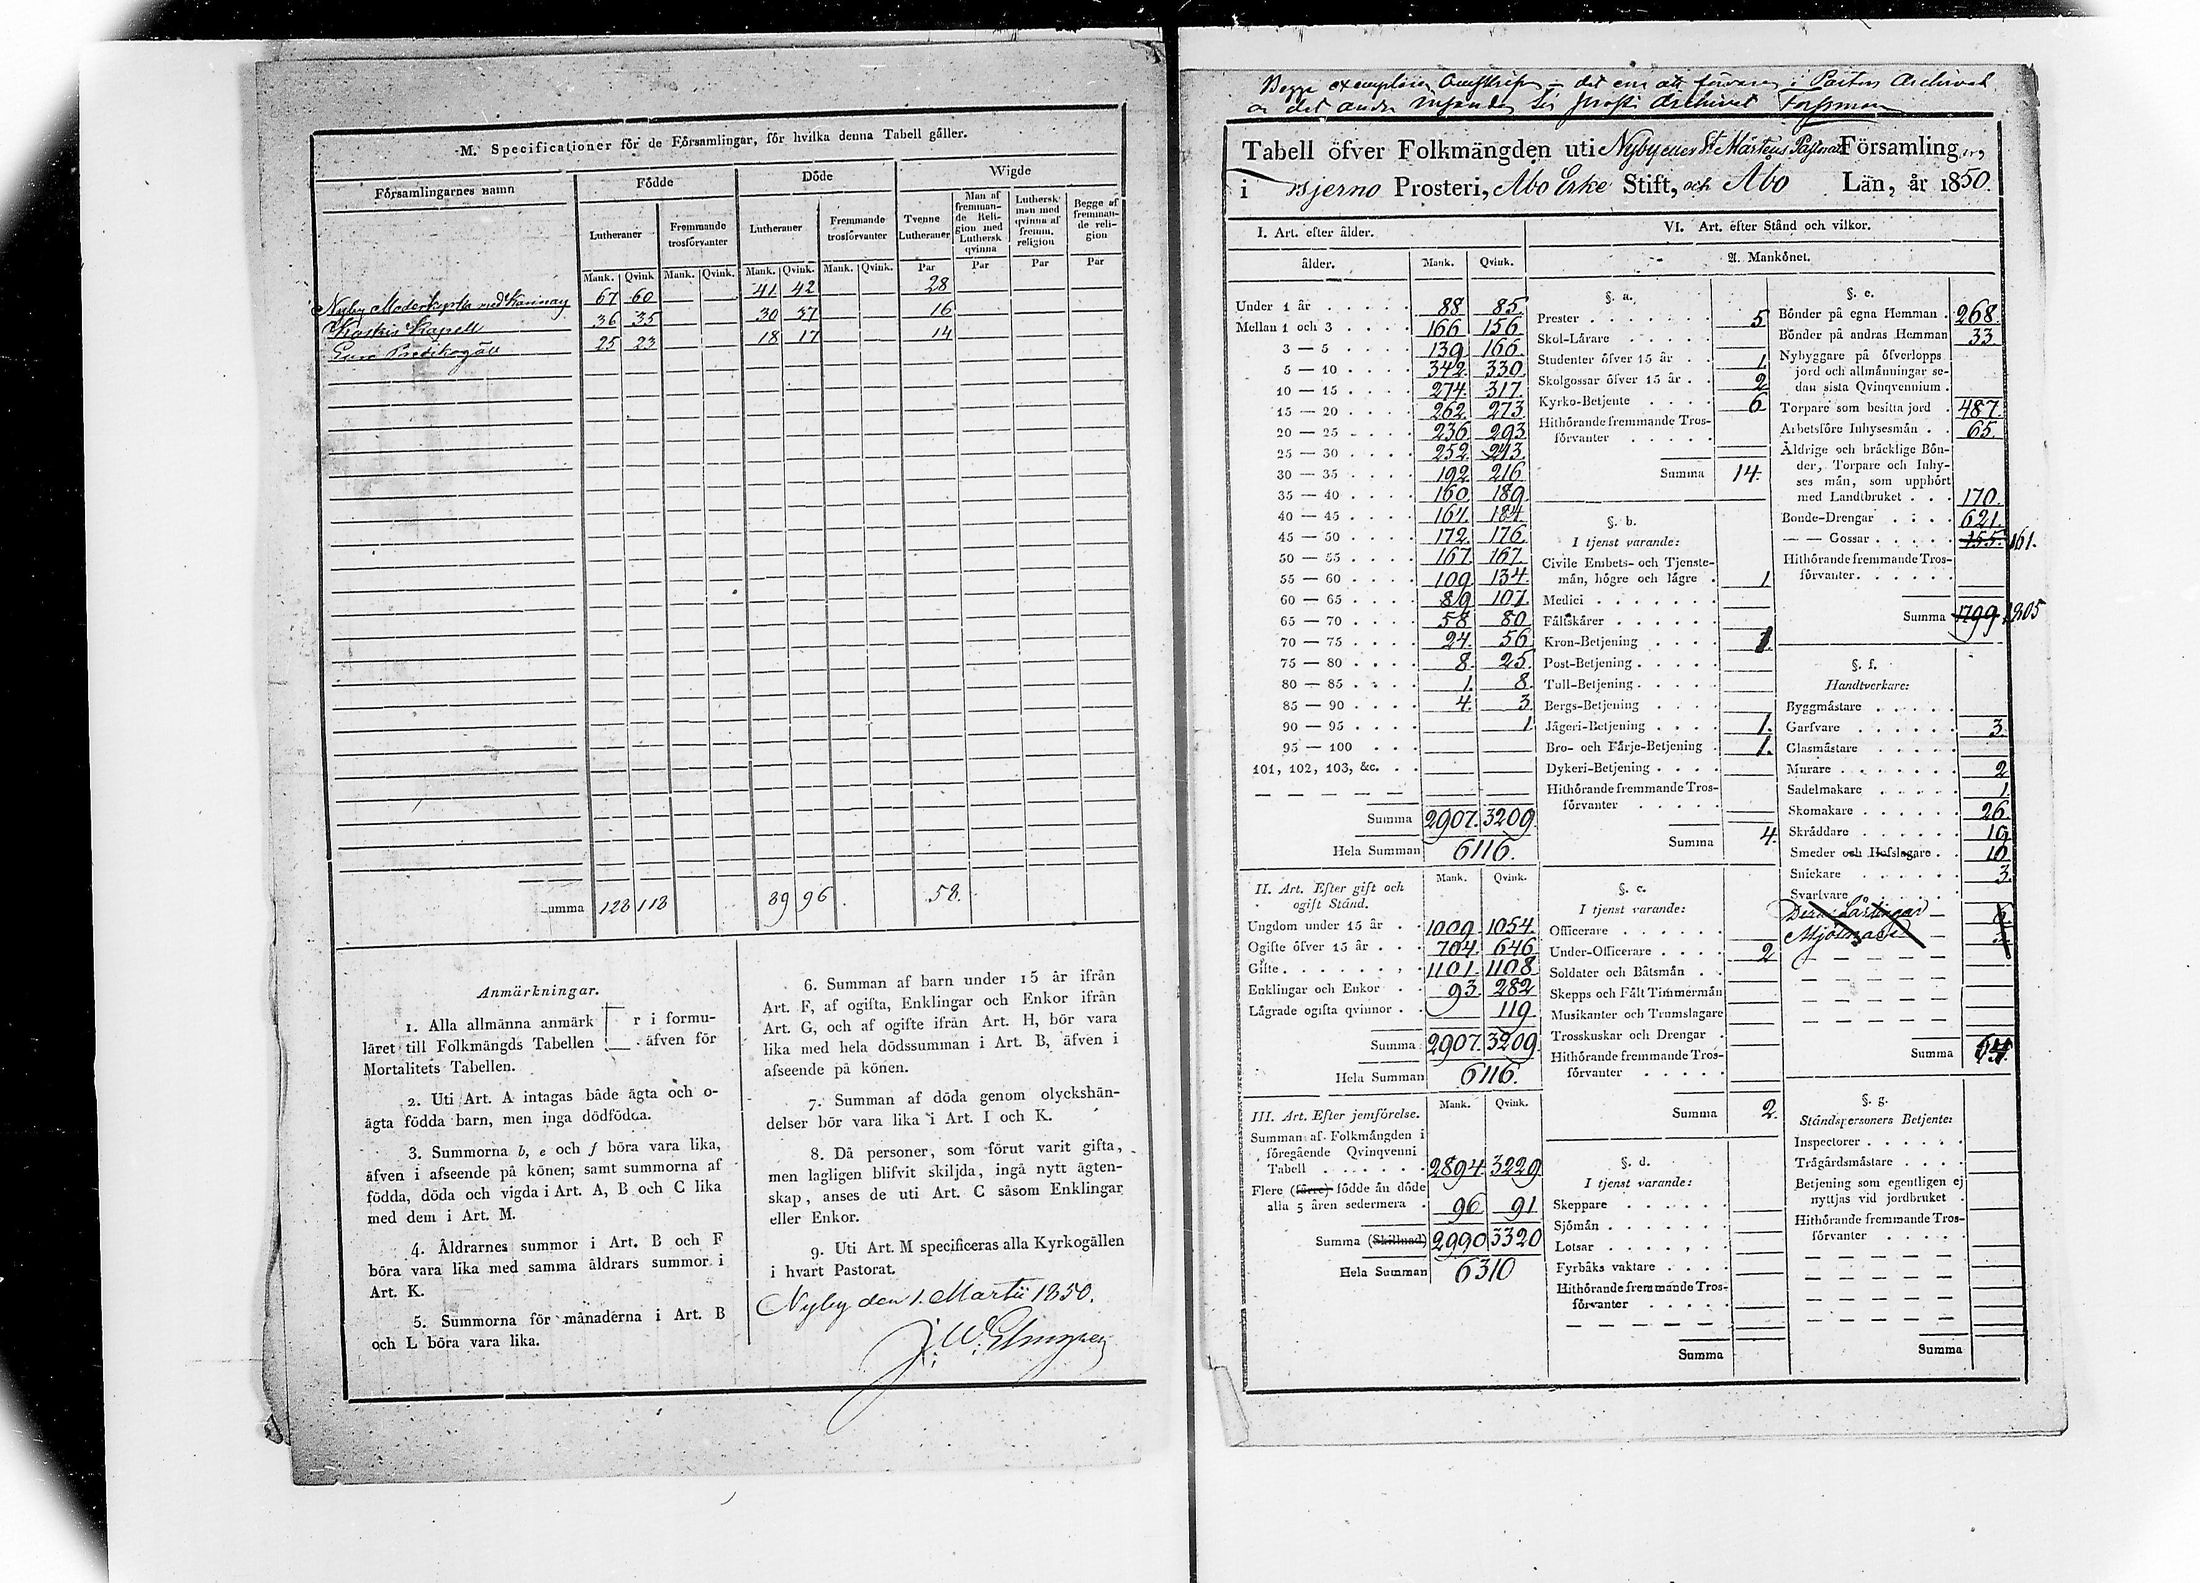 M. Specificationer för de Församlingar, för hvilka denna Tabell gäller.
Församlingarnes namn
Födde
Döde
Wigde
Lutheraner
Fremmande trosförvanter
Lutheraner
Fremmande trosförvanter
Tvenne Lutheraner
Man af fremmande Religion med Luthersk qvinna
Luthersk man med qvinna af fremm. religion
Begge af fremmande religion
Mank. Qvink Mank. Qvink. Mank. Qvink. Mank. Qvink. Par Par Par Par
Nyby Moderkyrka med Karinay 67 60 41 42 28
Koskis Kapell 36 35 30 37 16
Eura Predikogäll 25 23 18 17 14
umma 128 118 89 96 58.
Anmärkningar.
1. Alla allmänna anmärk r i formu-
läret till Folkmängds Tabellen äfven för
Mortalitets Tabellen.
2. Uti Art. A intagas både ägta och o-
ägta födda barn, men inga dödfödda.
3. Summorna b, e och f böra vara lika,
äfven i afseende på könen; samt summorna af
födda, döda och vigda i Art. A, B och C lika
med dem i Art. M.
4. Åldrarnes summor i Art. B och F
böra vara lika med samma åldrars summor i
Art. K.
5. Summorna för månaderna i Art. B
och L böra vara lika.
6. Summan af barn under 15 år ifrån
Art. F, af ogifta, Enklingar och Enkor ifrån
Art. G, och af ogifte ifrån Art. H, bör vara
lika med hela dödssumman i Art. B, äfven i
afseende på könen.
7. Summan af döda genom olyckshän-
delser bör vara lika i Art. I och K.
8. Då personer, som förut varit gifta,
men lagligen blifvit skiljda, ingå nytt ägten-
skap, anses de uti Art. C såsom Enklingar
eller Enkor.
9. Uti Art. M specificeras alla Kyrkogällen
i hvart Pastorat.
Nyby den 1. Martii 1850.
Begge exemplaren det ena att förvaras i Pastors Archivet
det andra Archivet Forssman
Tabell öfver Folkmängden uti Nyby eller St Mårtens Pastorat Församling er,
i Bjerno Prosteri, Åbo Erke Stift, och Åbo Län, år 1850.
I. Art. efter ålder.
ålder. Mank. Qvink.
Under 1 år 88 85.
Mellan 1 och 3 166 156
3 — 5 139 166.
5 — 10 342. 330.
10 — 15 274. 317.
15 — 20 262. 273.
20 — 25 236. 293.
25 — 30 252. 243.
30 — 35 192. 216
35 — 40 160. 189.
40 — 45 164. 184.
45 — 50 172. 176.
50 — 55 167. 167.
55 — 60 109. 134.
60 — 65 89. 107.
65 — 70 58. 80.
70 — 75 24. 56.
75 — 80 8. 25.
80 — 85 1. 8.
85 — 90 4. 3.
90 — 95 1.
95 — 100
101, 102, 103, &c.
Summa 2907. 3209
Hela Summan 6116.
II. Art. Efter gift och ogift Stånd. Mank. Qvink.
Ungdom under 15 år 1009. 1054.
Ogifte öfver 15 år 704. 646
Gifte 1101. 1108
Enklingar och Enkor 93. 282
Lägrade ogifta qvinnor 119.
Summa 2907. 3209.
Hela Summan 6116.
III. Art. Efter jemförelse. Mank. Qvink.
Summan af Folkmängden i
föregående Qvinqvenni
Tabell 2894 3229
Flere (färre) födde än döde
alla 5 åren sedermera 96 91
Summa (Skillnad) 2990 3320
Hela Summan 6310
VI. Art. efter Stånd och vilkor.
A. Mankönet.
§. a.
Prester 5
Skol-Lärare
Studenter öfver 15 år 1.
Skolgossar öfver 15 år 2
Kyrko-Betjente 6
Hithörande fremmande Tros-
förvanter
Summa 14.
§. b.
I tjenst varande:
Civile Embets- och Tjenste-
män, högre och lägre 1
Medici
Fältskärer
Kron-Betjening 1.
Post-Betjening
Tull-Betjening
Bergs-Betjening
Jägeri-Betjening 1.
Bro- och Färje-Betjening 1.
Dykeri-Betjening
Hithörande fremmande Tros-
förvanter
Summa 4.
§. c.
I tjenst varande:
Officerare
Under-Officerare 2
Soldater och Båtsmän
Skepps och Fält Timmermän
Musikanter och Trumslagare
Trosskuskar och Drengar
Hithörande fremmande Tros-
förvanter
Summa 2.
§. d.
I tjenst varande:
Skeppare
Sjömän
Lotsar
Fyrbåks vaktare
Hithörande fremmande Tros-
förvanter
Summa
§. e.
Bönder på egna Hemman 268.
Bönder på andras Hemman 33.
Nybyggare på öfverlopps
jord och allmänningar se-
dan sista Qvinqvennium
Torpare som besitta jord 487.
Arbetsföre Inhysesmän 65.
Åldrige och bräcklige Bön-
der, Torpare och Inhy-
ses män, som upphört
med Landtbruket 170.
Bonde-Drengar 621.
— — Gossar 155. 161.
Hithörande fremmande Tros-
förvanter
Summa 1799. 1805
§. f.
Handtverkare:
Byggmästare
Garfvare 3.
Glasmästare
Murare 2
Sadelmakare 1.
Skomakare 26.
Skräddare 19
Smeder och Hofslagare 10.
Snickare 3.
Svartvare
Deras Lärlingar 6.
Summa 64.
§. g.
Ståndspersoners Betjente:
Inspectorer
Trägårdsmästare
Betjening som egentligen ej
nyttjas vid jordbruket
Hithörande fremmande Tros-
förvanter
Summa